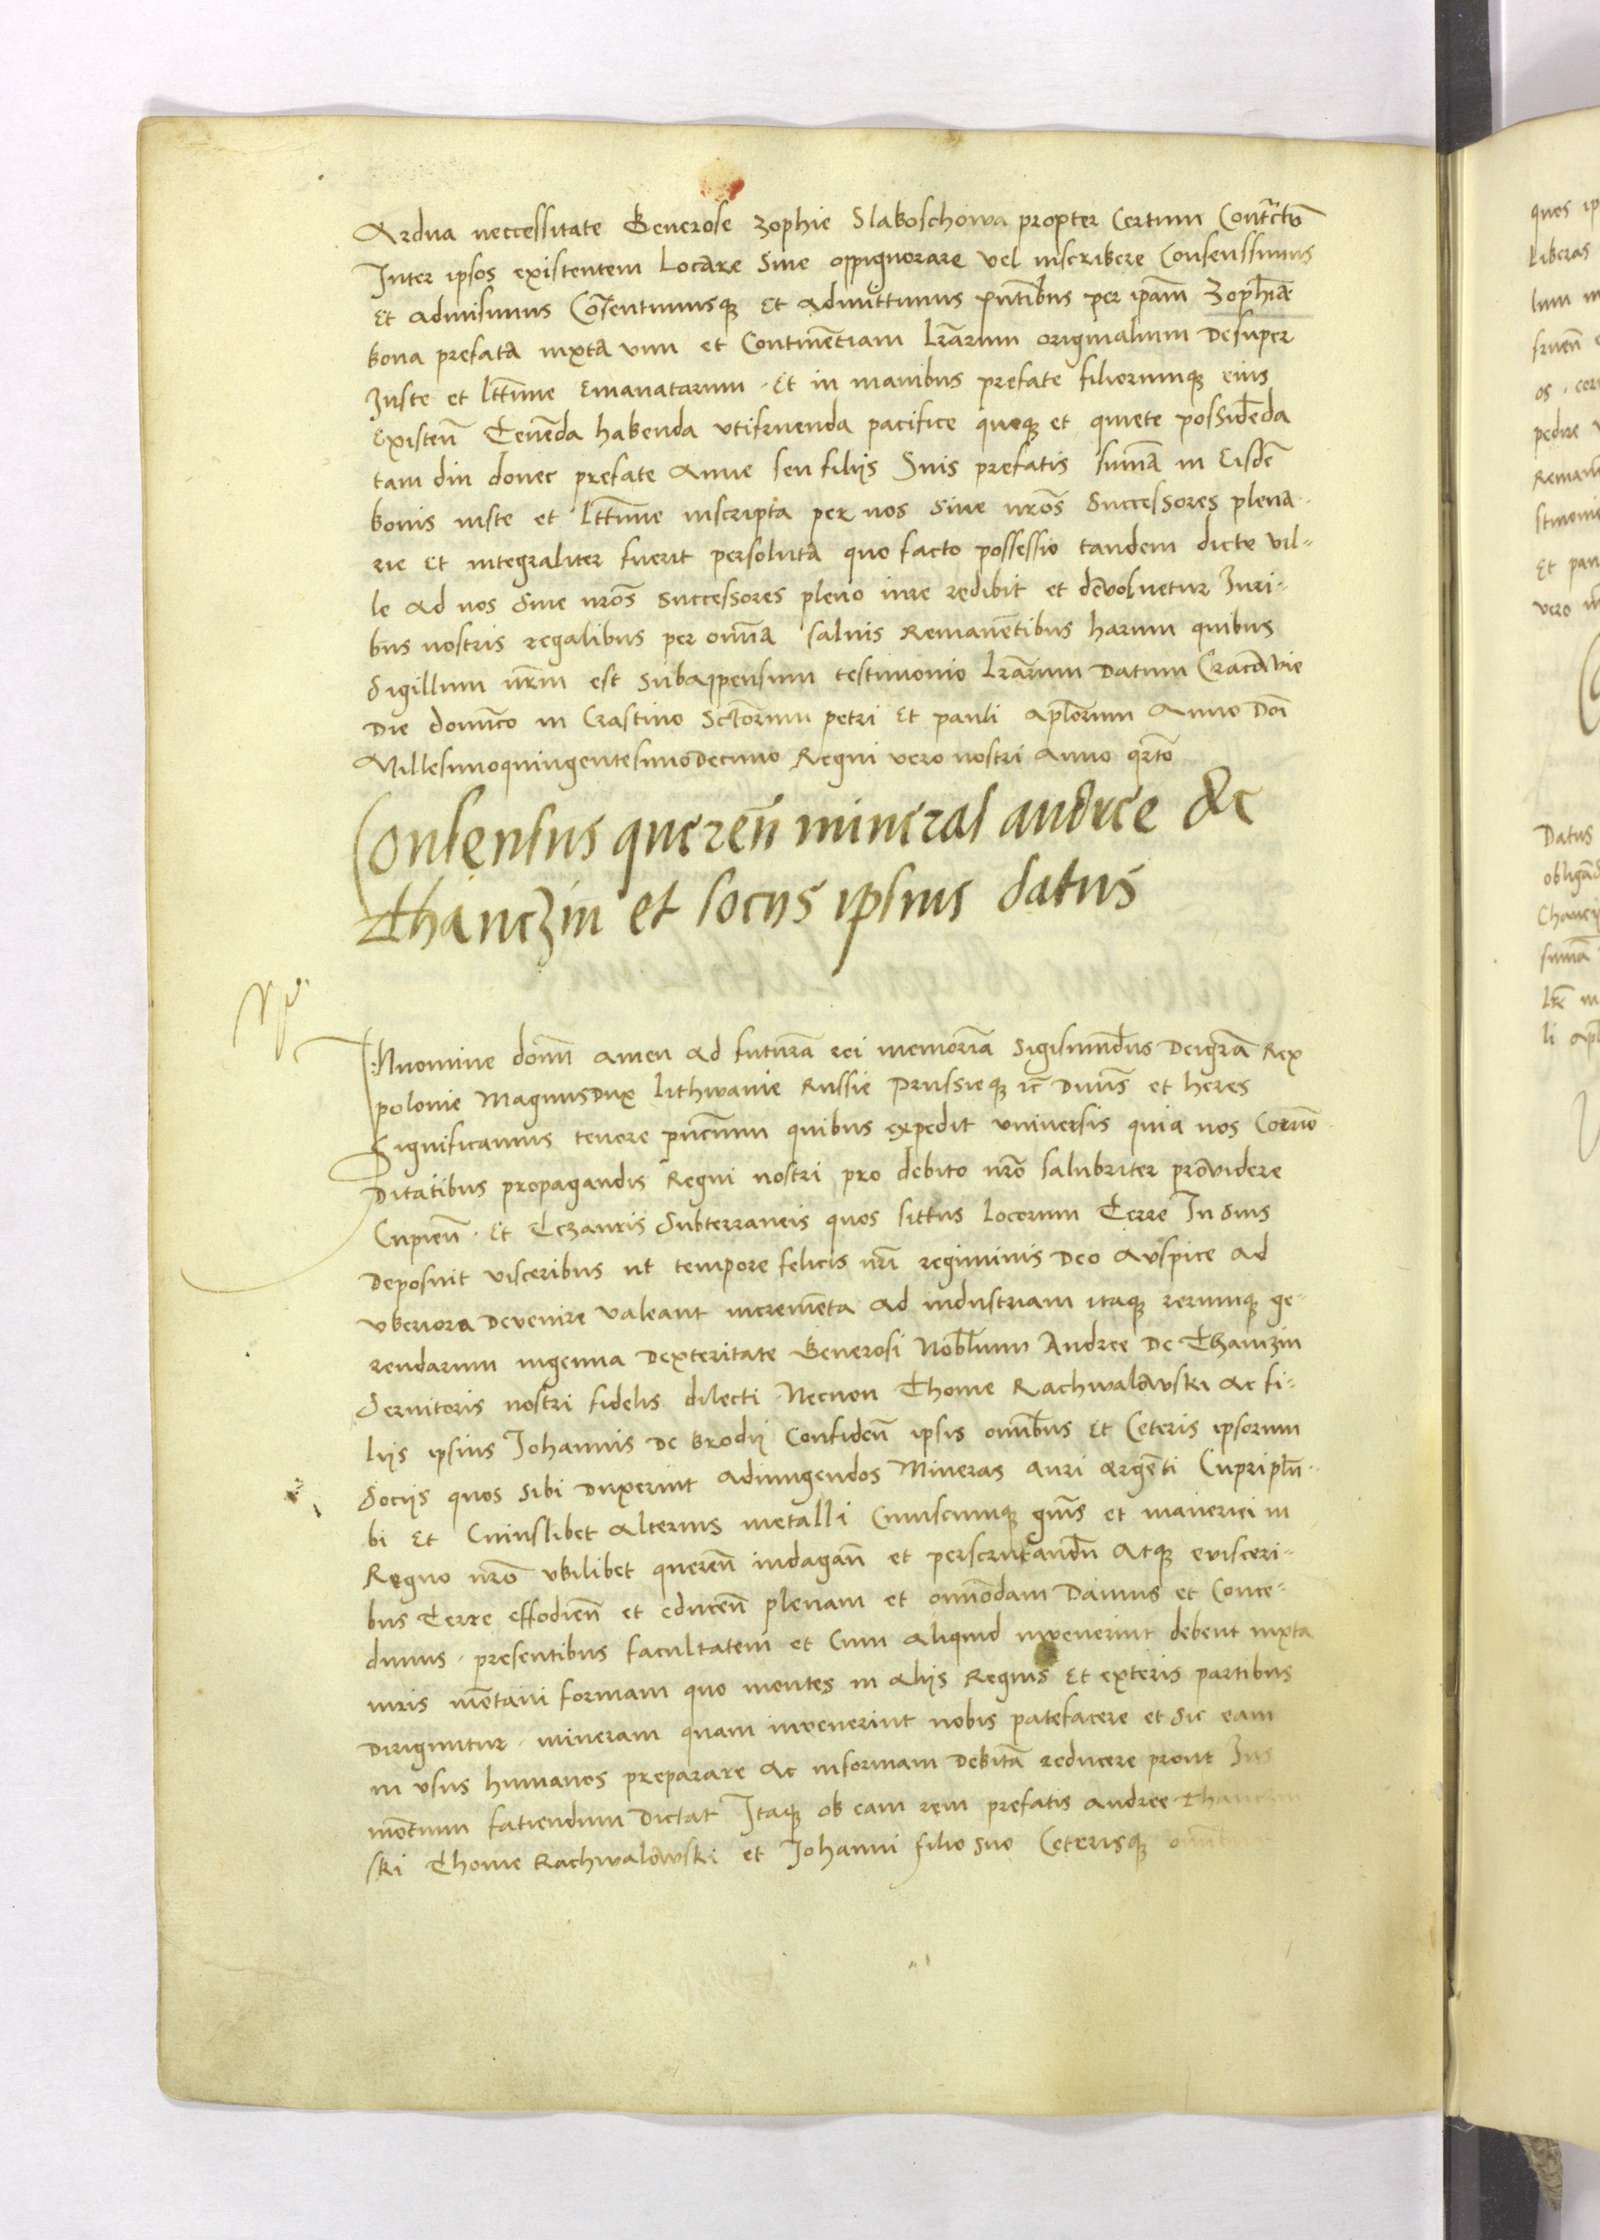 Ardua neccessitate Generose Zophie Slaboschowa propter Certum Contractũ
Inter ipsos existentem Locare Sive oppignorare vel inscribere Consenssimus
Et admisimus Cõsentimusq̃ Et Admittimus pñtibus per ipam̃ Zophiã
bona prefata iuxta vim et Continẽtiam Lrãrum originalium Desuper
Iuste et lttime Emanatarum · Et in manibus prefate filiorumq̃ eius
Existeñ Tenẽda habenda utifruenda pacifice quoq̃ et quiete possidẽda
tam diu donec prefate Anne seu filijs Suis prefatis sum̃a in Eisdẽ
bonis iuste et lttime inscripta per nos Sive nrõs Successores plena-
rie Et integraliter fuerit persoluta quo facto possessio tandem dicte vil-
le Ad nos Sive nrõs Successores pleno iure redibit et devoluetur Iuri-
bus nostris regalibus per om̃ia salvis Remanẽtibus harum quibus
Sigillum nrm̃ est Subappensum testimonio Lrãrum Datum Cracovie
Die domĩco in Crastino Sctõrum petri Et pauli Aplõrum Anno Doi
Millesimoquingentesimodecimo Regni vero nostri Anno qrto
Consensus quereñ mineral andree de
Thanczin et socijs ipsius datus
In nomine domĩ amen Ad futurã rei memoriã Sigismũdus Dei grã Rex
polonie Magnus Dux Lithwanie Russie Prussieq̃ ic̃ Dñus et heres
Significamus tenore pñcium quibus expedit universis quia nos Com̃o-
Ditatibus propagandis Regni nostri pro debito nrõ salubriter providere
Cupieñ · Et Tezauris Subterraneis quos sittus Locorum Terre In Suis
Deposuit visceribus ut tempore felicis nrĩ regiminis Deo Auspice ad
Uberiora Devenire valeant incremẽta Ad industriam itaq̃ rerumq̃ ge-
rendarum ingenua Dexteritate Generosi Nobilium Andree De Thanczin
Servitoris nostri fidelis dilecti Necnon Thome Rachwalowski Ac fi-
lijs ipsius Johannis De brodij Confideñ ipsis om̃ibus Et Ceteris ipsorum
Socijs quos Sibi Duxerint Adiungendos Mineras Auri Argẽti Cupri plũ-
bi Et Cuiuslibet Alterius metalli Cuiuscumq̃ gñis et maneriei in
Regno nrõ ubilibet quereñ indagañ et perscrutandñ Atq̃ e visceri-
bus Terre effodieñ et educeñ plenam et om̃odam Damus et Conce-
dimus · presentibus facultatem et Cum Aliquid invenerint debent iuxta
iuris mõtani formam quo montes in Alijs Regnis Et exteris partibus
Diriguntur · mineram quam invenerint nobis patefacere et Sic eam
in usus humanos preparare Ac in formam Debitã reducere prout Ius
mõtanum faciendum Dictat Itaq̃ ob eam rem prefatis Andree Thanczin
ski Thome Rachwalowski et Johanni filio suo Ceterisq̃